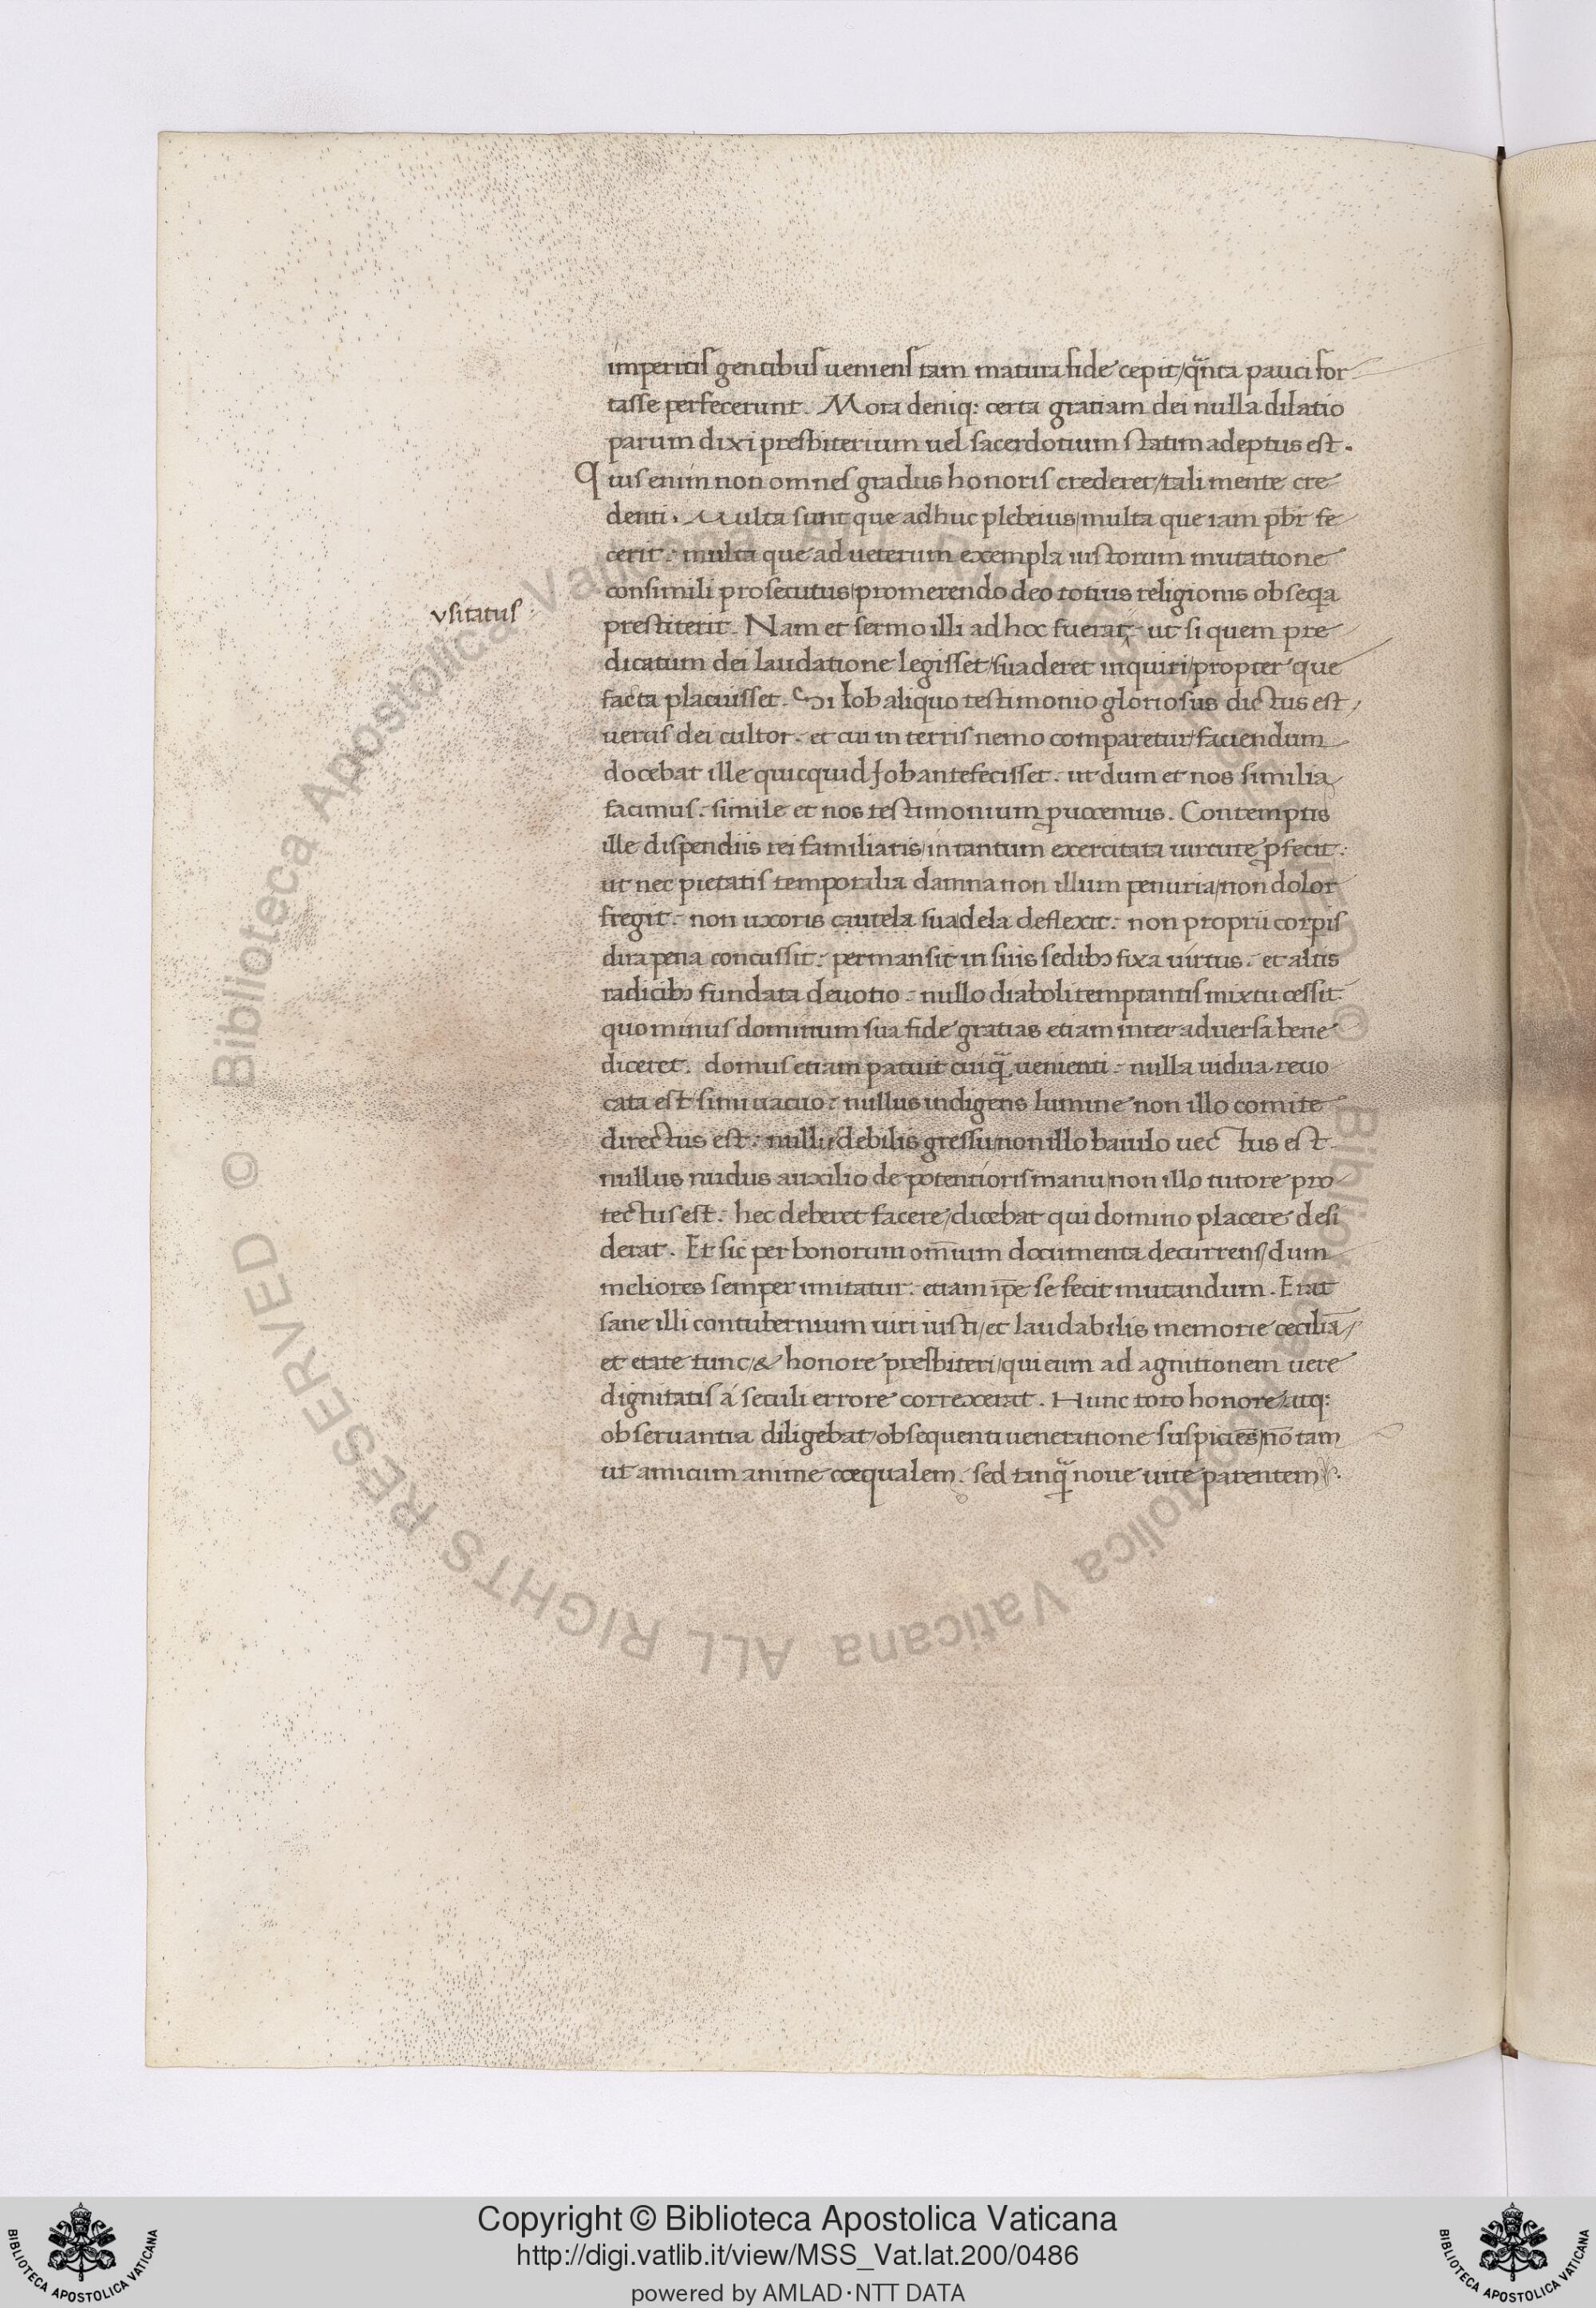 imperitis gentibus ueniens tam matura fide cepit/ q̃nta pauci for
tasse perfecerunt. Mora deniq: certa gratiam dei nulla dilatio
parum dixi presbiterium uel sacerdotium statim adeptus est.
Quis enim non omnes gradus honoris crederet/ tali mente cre
denti. Multa sunt que adhuc plebeius/ multa que iam pb̄r fe
cerit. multa que ad ueterum exempla iustorum imitatione
consimili prosecutus/ promerendo deo totius religionis obseqa
vsitatus
prestiterit. Nam et sermo illi ad hoc fuerat, ut si quem pre
dicatum dei laudatione legisset/ suaderet inquiri/ propter que
facta placuisset. Si Iob aliquo testimonio gloriosus dictus est,
uerus dei cultor. et cui in terris nemo comparetur/ faciendum
docebat ille quicquid Iob ante fecisset. ut dum et nos similia
facimus. simile et nos testimonium ꝓuocemus. Contemptis
ille dispendiis rei familiaris/ in tantum exercitata uirtute ꝓfecit:
ut nec pietatis temporalia damna non illum penuria/ non dolor
fregit. non uxoris cautela suadela deflexit. non proprii corpis
dira pena concussit. permansit in suis sedibꝫ fixa uirtus. et altis
radicibꝫ fundata deuotio. nullo diaboli temptantis mixtu cessit.
quo minus dominum sua fide gratias etiam inter aduersa bene
diceret. domus etiam patuit cuiq̃ uenienti. nulla uidua reuo
cata est sinu uacuo. nullus indigens lumine non illo comite
directus est. nullus debilis gressu/ non illo baiulo uectus est.
nullus nudus auxilio de potentioris manu/ non illo tutore pro
tectus est. hec deberet facere/ dicebat qui domino placere desi
derat. Et sic per bonorum om̄ium documenta decurrens/ dum
meliores semper imitatur. etiam ip̄e se fecit imitandum. Erat
sane illi contubernium uiri iusti/ et laudabilis memorie cecilia̅/
et etate tunc/ & honore presbiteri/ qui eum ad agnitionem uere
dignitatis á seculi errore correxerat. Hunc toto honore atq:
obseruantia diligebat/ obsequenti ueneratione suspicie̅s/ no̅ tam
ut amicum anime coequalem. sed tanq̃ noue uite parentem.
Copyright © Biblioteca Apostolica Vaticana
http://digi.vatlib.it/view/MSS_Vat.lat.200/0486
powered by AMLAD·NTT DATA
BIBLIOTECA APOSTOLICA VATICANA
BIBLIOTECA APOSTOLICA VATICANA
© Biblioteca Apostolica Vaticana ALL RIGHTS RESERVED
© Biblioteca Apostolica Vaticana ALL RIGHTS RESERVED